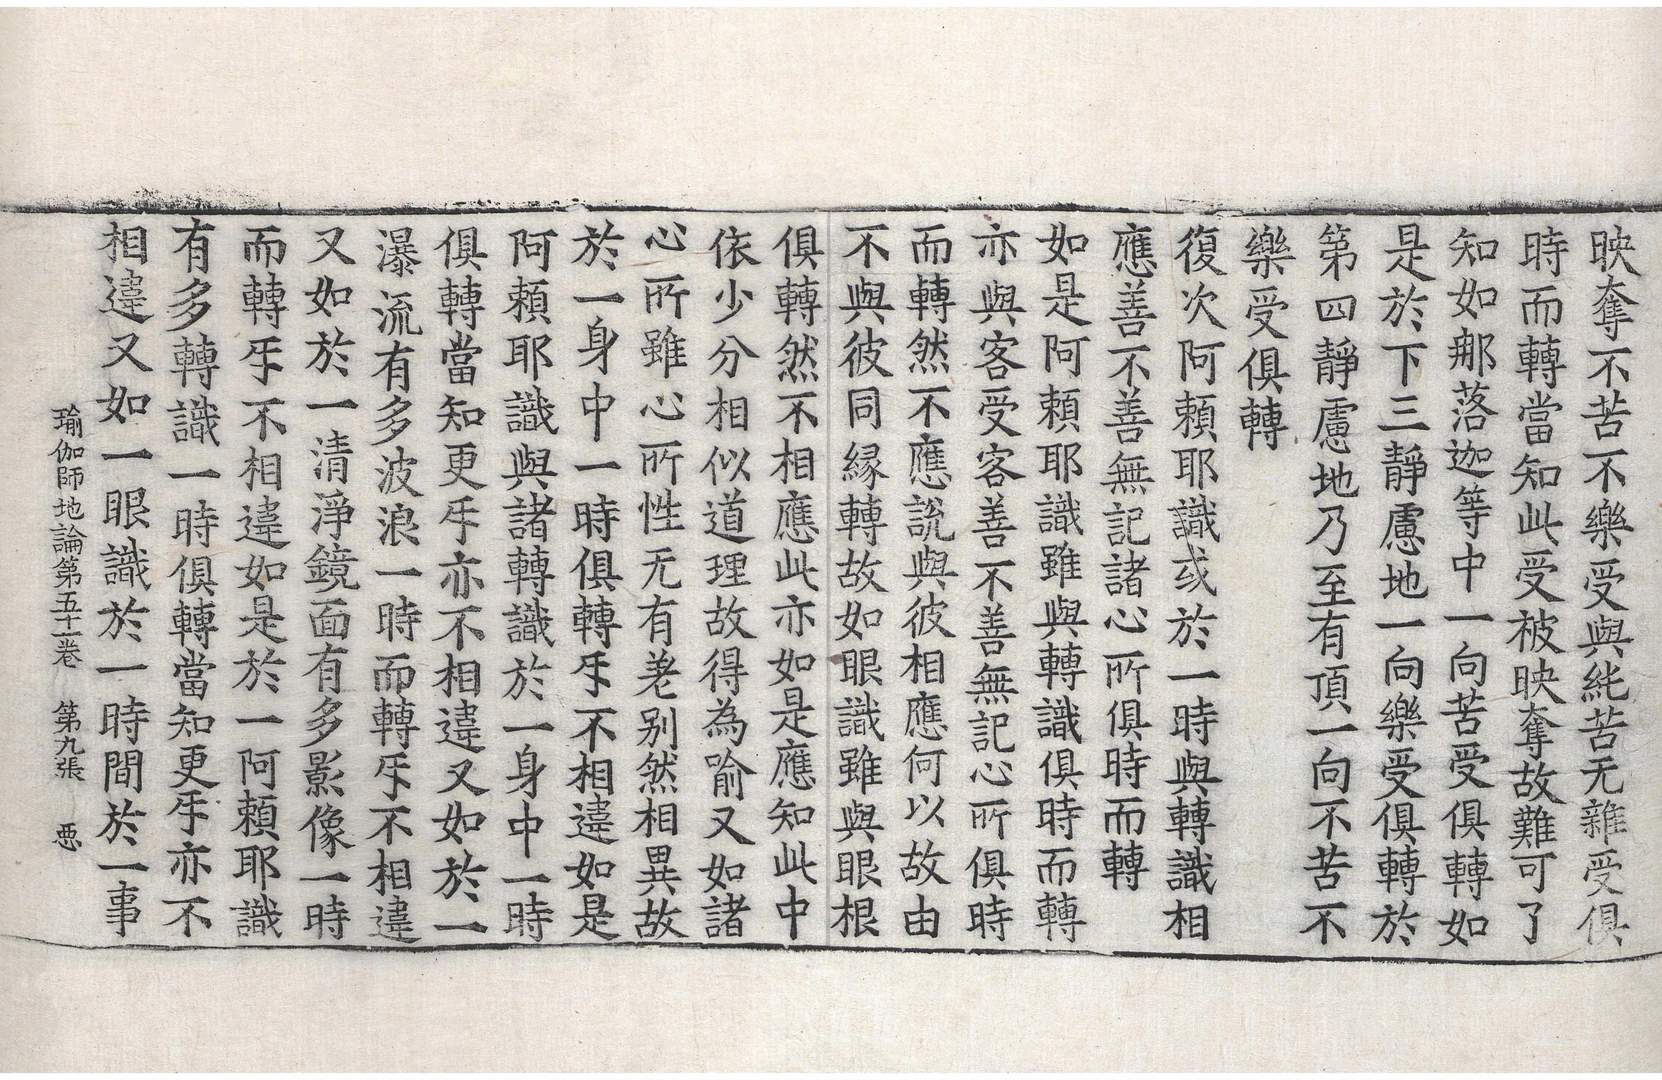 映奪不苦不樂受與純苦无雜受俱
時而轉當知此受被映奪故難可了
知如那落迦等中一向苦受俱轉如
是於下三靜慮地一向樂受俱轉於
第四靜慮地乃至有頂一向不苦不
樂受俱轉
復次阿賴耶識或於一時與轉識相
應善不善無記諸心所俱時而轉
如是阿賴耶識雖與轉識俱時而轉
亦與客受客善不善無記心所俱時
而轉然不應說與彼相應何以故由
不與彼同緣轉故如眼識雖與眼根
俱轉然不相應此亦如是應知此中
依少分相似道理故得為喻又如諸
心所雖心所性无有差别然相異故
於一身中一時俱轉㸦不相違如是
阿賴耶識與諸轉識於一身中一時
俱轉當知更㸦亦不相違又如於一
瀑流有多波浪一時而轉㸦不相違
又如於一清淨鏡面有多影像一時
而轉㸦不相違如是於一阿賴耶識
有多轉識一時俱轉當知更㸦亦不
相違又如一眼識於一時間於一事
瑜伽師地論第五十一卷 第九張 惡